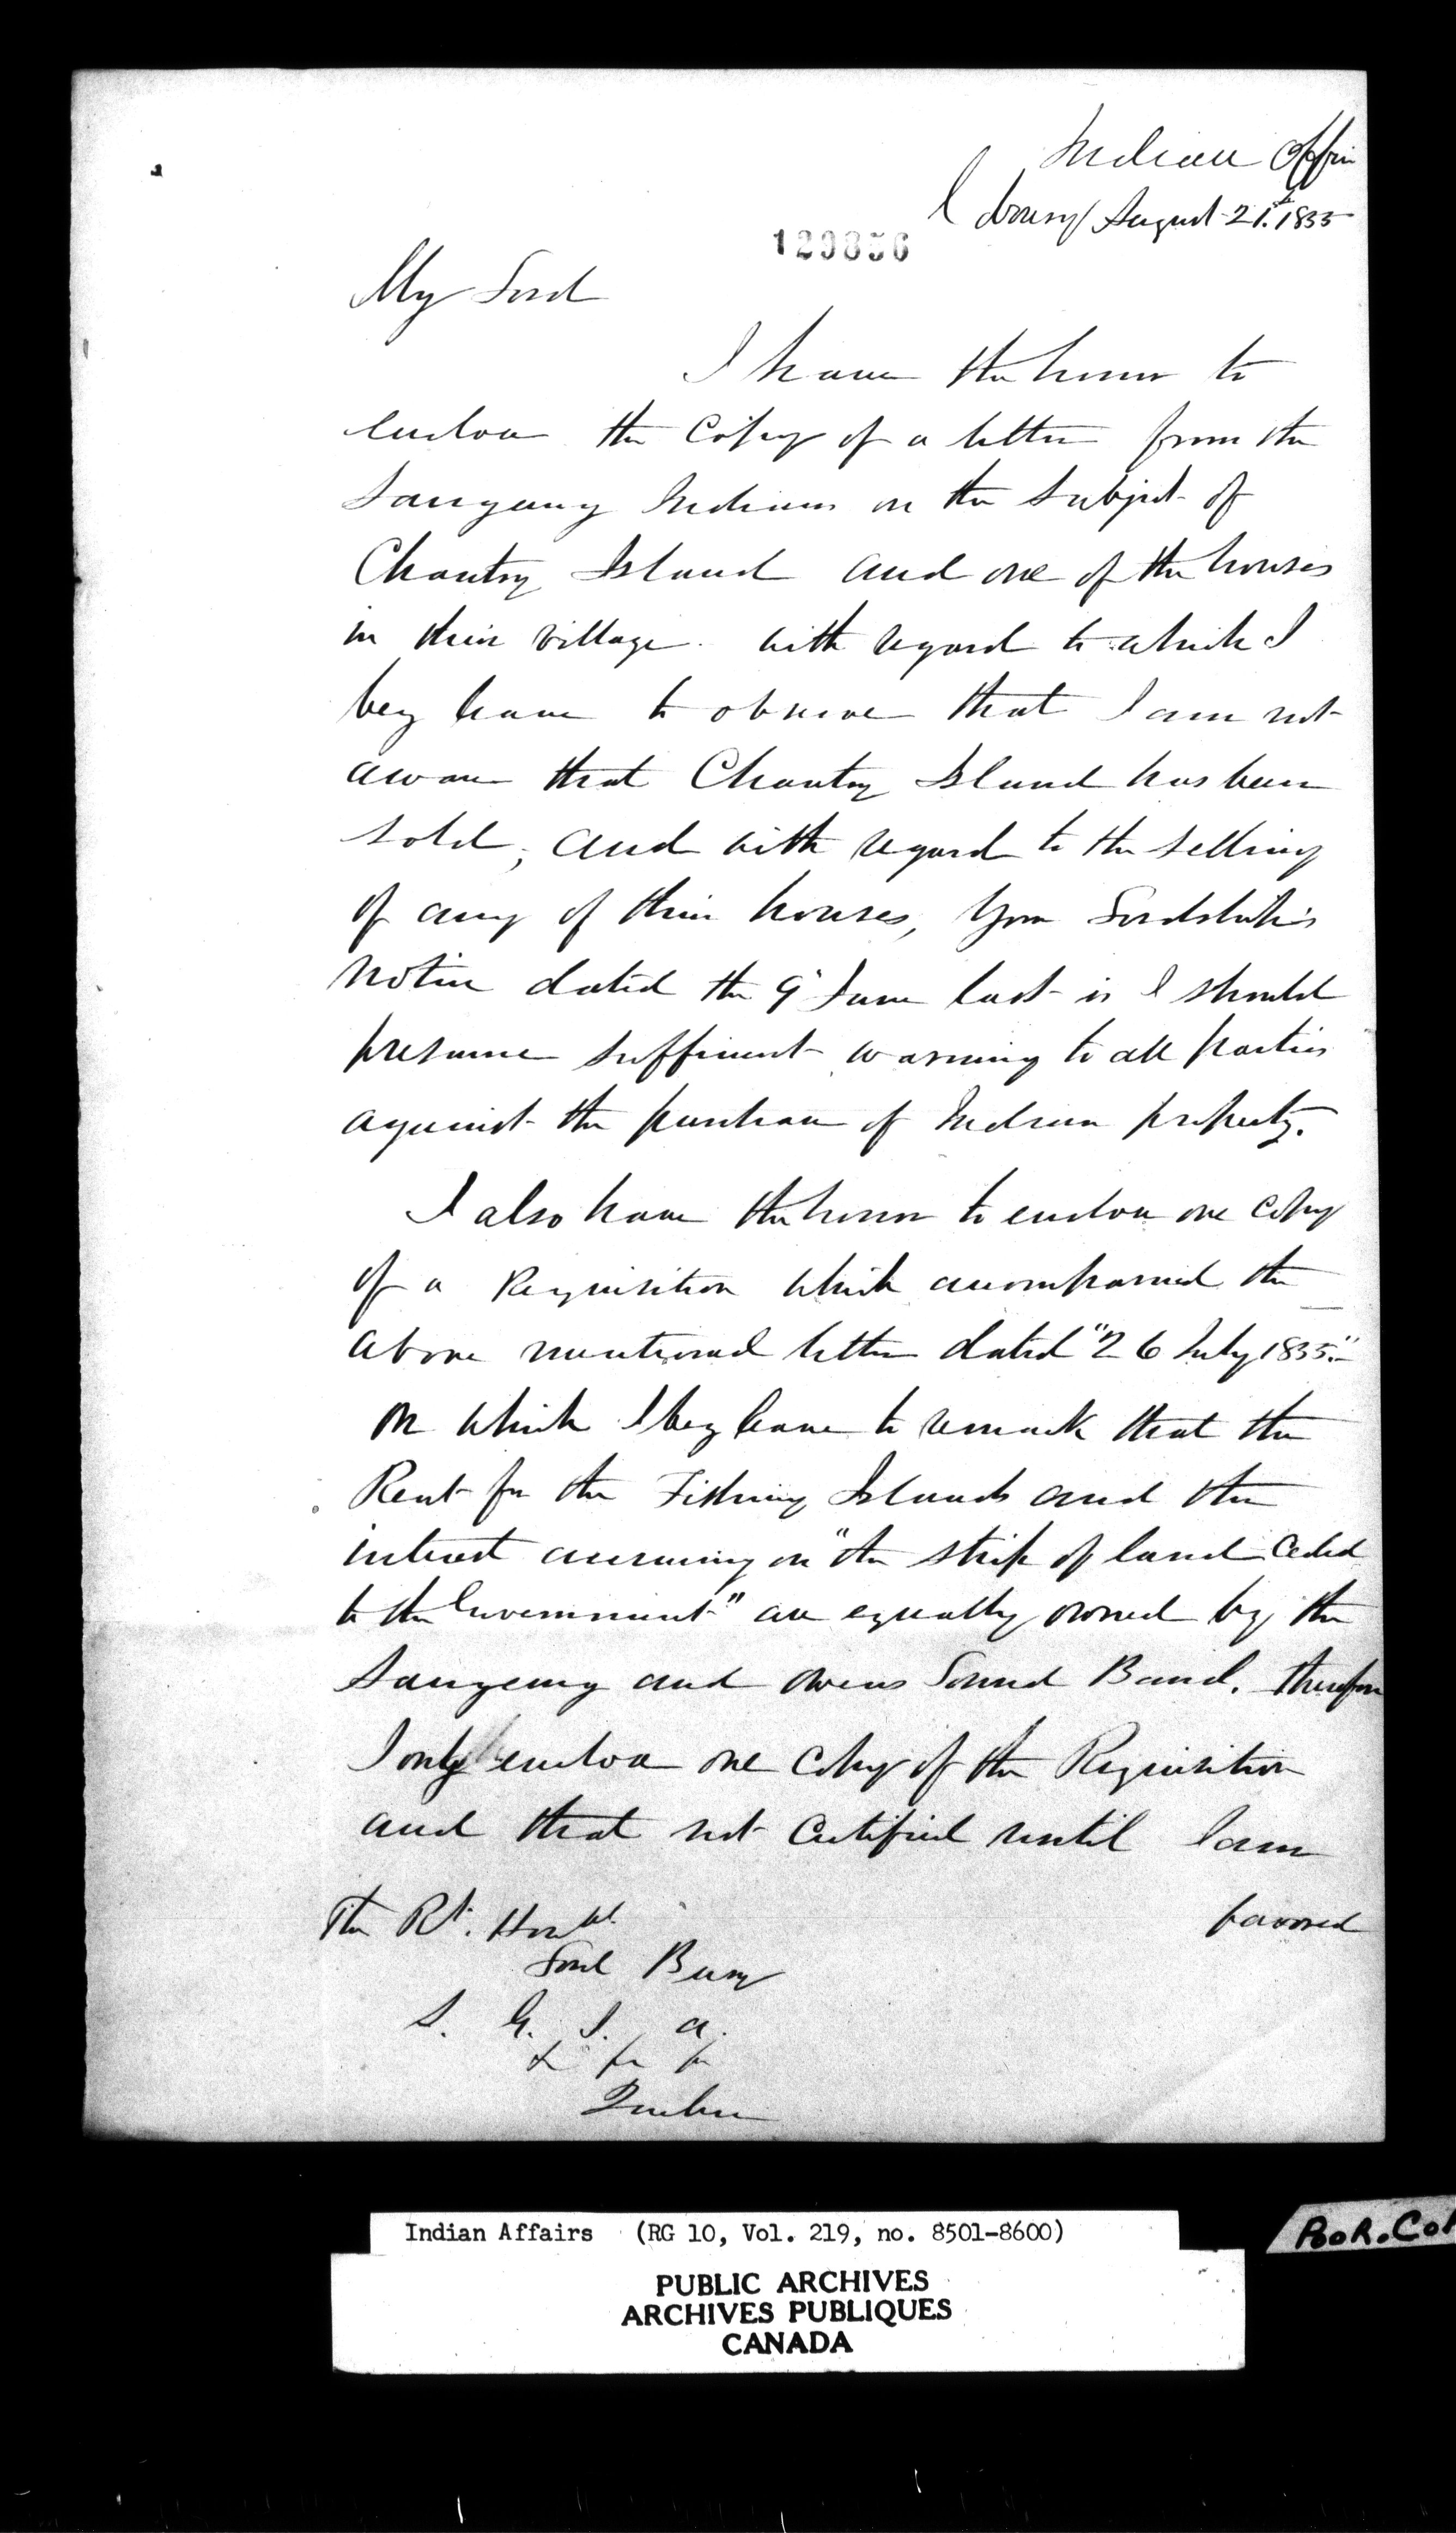 Indian Office
August 21st 1855
129856
My Lord
I have the honor to
enclose the Copy of a letter from the
Saugeeng Indians on the subject of
Chantry Island and one of the houses
in their village. with regard to which I
beg leave to observe that I am not
aware that Chantry Island has been
sold, and with regard to the selling
of any of their houses, Your Lordship's
notice dated the 9" June last is I should
presume sufficient warning to all parties
against the purchase of Indian property.
I also have the honor to enclose one copy
of a Requisition which accompanied the
above mentioned letter dated "26 July 1855."
on which I beg leave to remark that the
Rent for the Fishing Islands and the
interest accruing on "the strip of land ceded
to the Government" are equally owned by the
Saugeeng and Owens Sound Band. therefore
I only enclose one copy of the Requisition
and that not certified until I am
favored
The Rt. Honble
Lord Bury
S. G. I. A.
& &c &c
Quebec
Indian Affairs (RG 10, Vol. 219, no. 8501-8600)
PUBLIC ARCHIVES
ARCHIVES PUBLIQUES
CANADA
POOR.COP